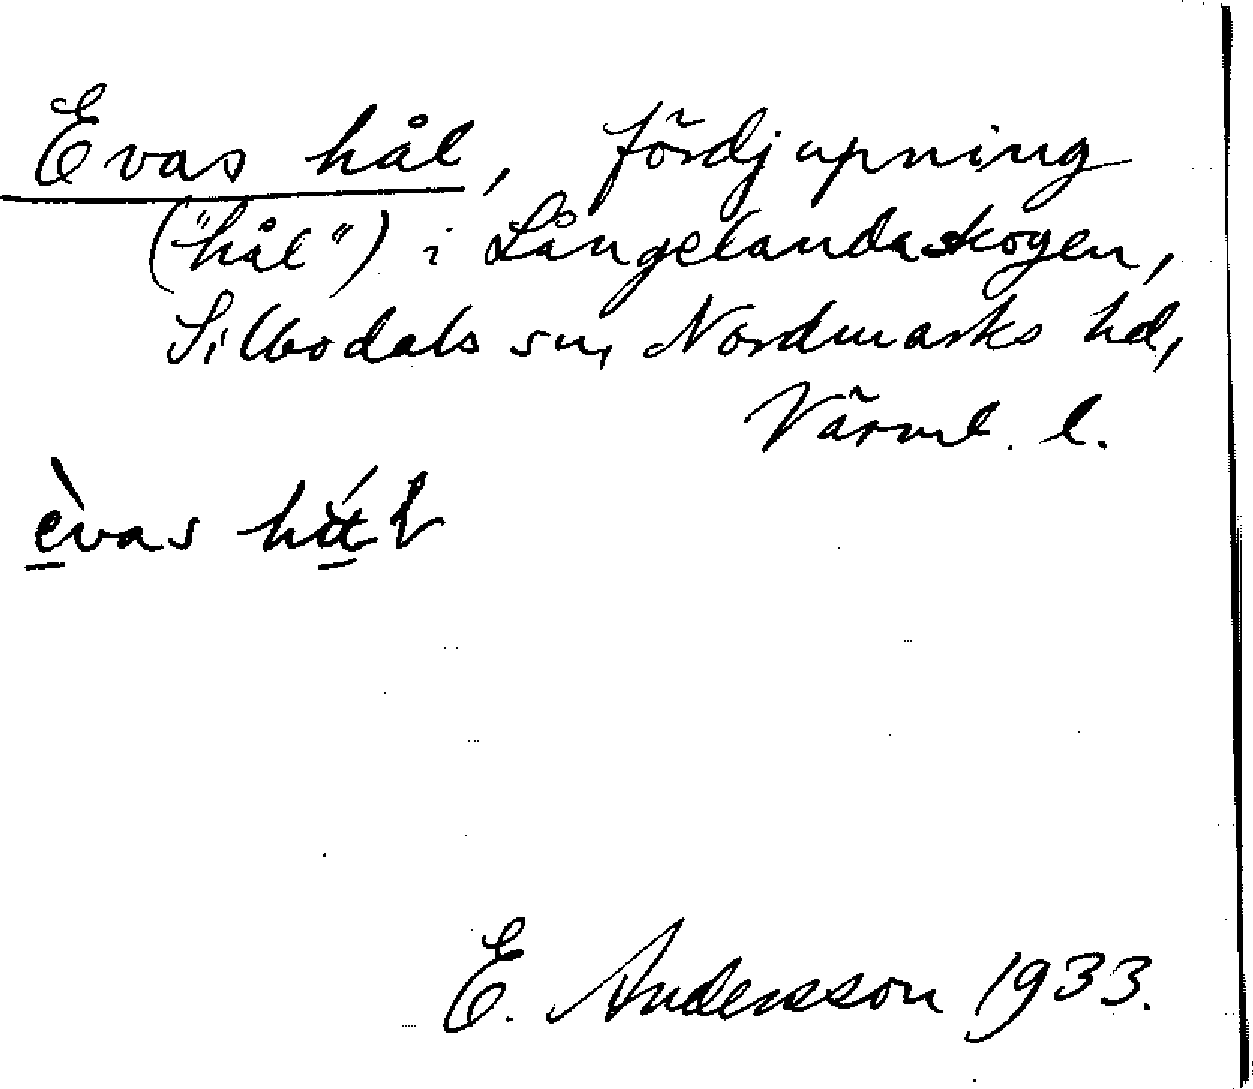 Evas hål, fördjupning
("hål") i Långelandaskogen,
Silbodals sn, Nordmarks hd,
Värml. l.
èvas
E. Andersson 1933.